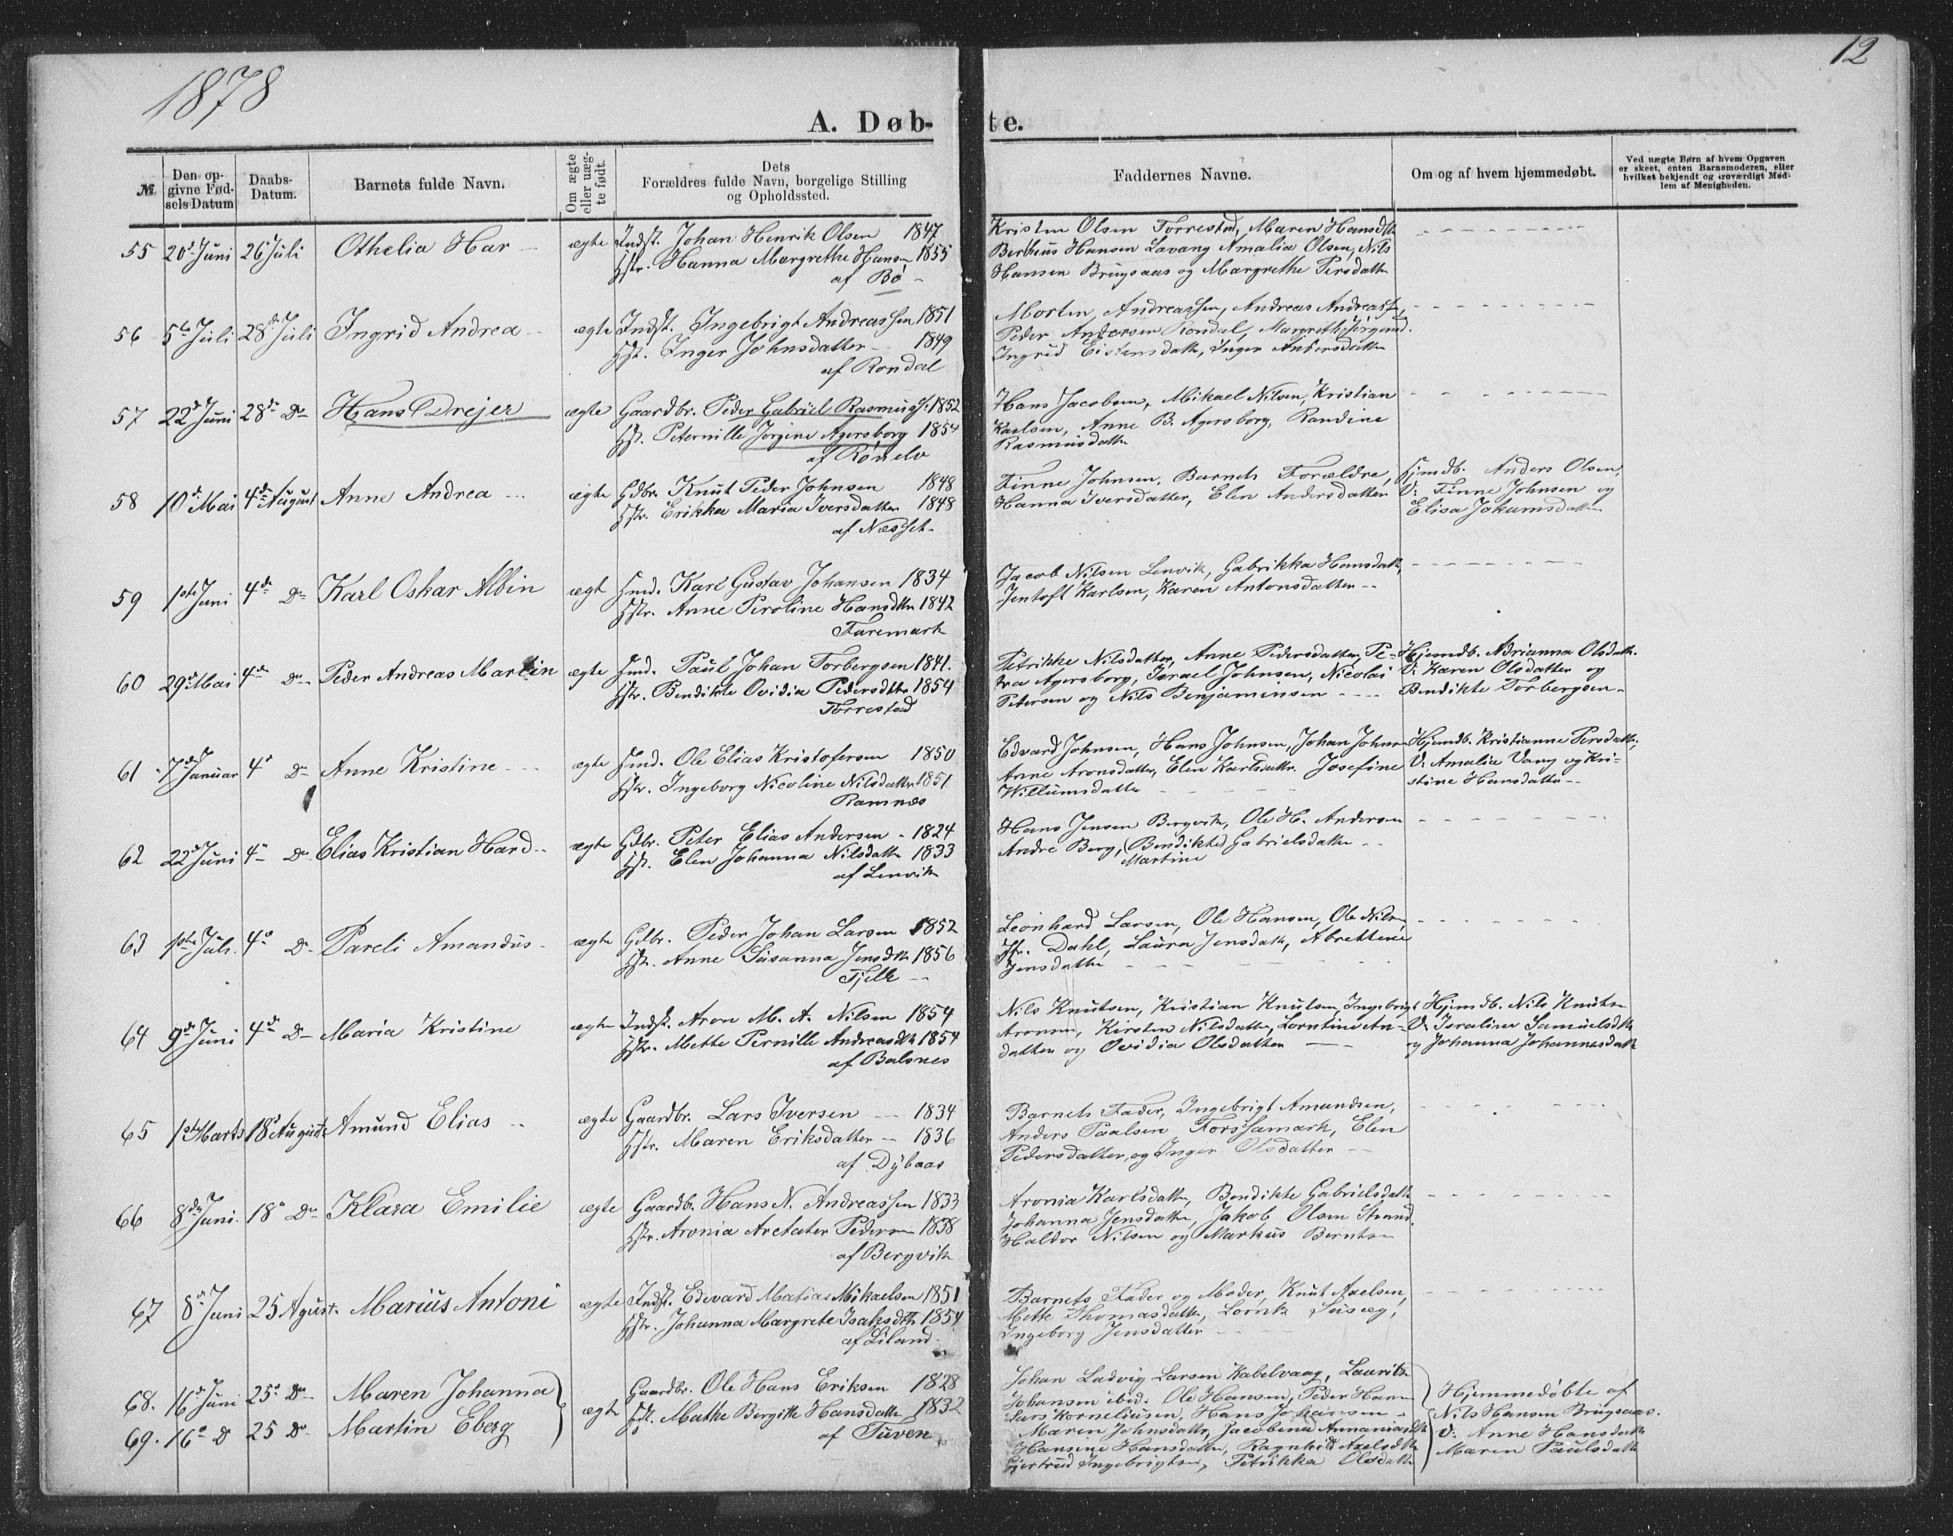 1878
12
A. Døb-
te.
№
Den op-
givne Fød-
sels Datum
Daabs-
Datum.
Barnets fulde Navn.
Om ægte
eller uæg-
te født.
Dets
Forældres fulde Navn, borgelige Stilling
og Opholdssted.
Faddernes Navne.
Om og af hvem hjemmedøbt.
Ved uægte Børn af hvem Opgaven
er skeet, enten Barnemoderen, eller
hvilket bekjendt og troværdigt Med-
lem af Menigheden.
55 20de Juni 26 Juli Othelia Har ægte Indst. Johan Henrik Olsen 1847
Hstr. Hanna Margrethe Hansen 1855
af Bø
Kristen Olsen Torrestad, Maren Hansdtr
Bertheus Hansen Lavang Amalia Olsen, Nils
Hansen Brugsaas og Margrethe Persdatter
56 5te Juli 28de Juli Ingrid Andrea ægte Indst. Ingebrigt Andreassen 1851
Hst. Inger Johnsdatter 1849
af Rondal
Morten Andreassen, Andreas Andreassen,
Peder Andersen Rondal, Margreth Jørgensd.
Ingrid Eistensdatter, Inger Andersdatter
57 22de Juni 28de Do Hans Drejer ægte Gaardbr. Peder Gabriel Rasmuss. 1852
Hst. Peternille Jørgine Agersborg 1854
af Rødselv
Hans Jacobsen, Mikael Nilsen, Kristian
Karlsen, Anne B. Agersborg, Randine
Rasmusdatter
58 10de Mai 4de August Anne Andrea ægte Gdbr. Knut Peder Johnsen 1848
Hstr. Erikka Maria Iversdatter 1848
af Næsset
Finne Johnsen, Barnets Forældre,
Hanna Iversdatter, Elen Andersdatter
Hjmdb. Anders Olsen
V: Finne Johnsen og
Elisa Johannsdatter
59 1ste Juni 4de Do Karl Oskar Albin ægt Jnd. Karl Gustav Johansen 1834
Hstr. Anne Peroline Hansdtr 1842
Faremark
Jacob Nilsen Lenvik, Gabrikka Hansdatter,
Jentoft Karlsen, Karen Antonsdatter
60 29de Mai 4de Do Peder Andreas Martin ægte Jnd. Paul Johan Torbergsen 1841.
Hstr. Bendikte Ovidia Pedersdtr 1854
Torrestad
Petrikke Nilsdatter, Anne Pedersdatter, Pe-
tra Agersborg, Israel Johnsen, Nicolai
Petersen og Nils Benjaminsen
Hjemdb. Adrianna Olsdatr.
V: Karen Olsdatter og
Bendikte Torbergsen
61 7de Januar 4de Do Anne Kristine ægte Jnd. Ole Elias Kristofersen 1850
Hstr. Ingeborg Nicoline Nilsdatter 1851
Ramnæs
Edvard Johnsen, Hans Johnsen, Johan Johnsen
Anne Aronsdatter, Elen Karlsdatter. Josefine
Willumsdatter
Hjemdb. Kristianne Persdatter,
V: Amalia Vang og Kri-
stine Hansdatter
62 22de Juni 4de Do Elias Kristian Hard ægte Gdbr. Peter Elias Andersen 1824
Hst. Elen Johanna Nilsdatter 1833
af Lenvik
Hans Jensen Bergvik, Ole H. Andersen
Andre Berg, (Bendikte) Gabrielsdatter
Martine
63 1ste Juli 4de Do Pareli Amandus ægte Gdbr. Peder Johan Larsen 1852
Hstr. Anne Susanna Jensdtr 1856
Fjelle
Leonhard Larsen, Ole Hansen, Ole Nilsen,
Hr. Dahl, Laura Jensdatr, Abrettine
Jensdatter
64 9de Juni 4de Do Maria Kristine ægte Indst. Aron M. A. Nilsen 1854
Hstr. Mette Pernille Andreasdtr 1854
af Balsnes
Nils Knutsen, Kristian Knutsen, Ingebrigt
Aronsen, Kirsten Nilsdatter, Lorntine An-
datter og Ovidia Olsdatter
Hjemdb. Nils Knutsen
V: Israline Samuelsdtr
og Johanna Johannesdatter
65 1ste Marts 18de August Amund Elias ægte Gaardbr. Lars Iversen 1834
Hstr. Maren Eriksdatter 1836
af Dybaas
Barnets Fader, Ingebrigt Amundsen,
Anders Paalsen Forssamark, Elen
Pedersdatter, og Inger Olsdatter
66 8de Juni. 18de Do Klara Emilie ægte Gaardbr. Hans N. Andreassen 1833
Hstr. Aronia Arctater Pedersen 1838
af Bergvik
Aronia Karlsdatter, Bendikte Gabrielsdatter
Johanna Jensdatter, Jakob Olsen Strand.
Haldor Nilsen og Markus Berntsen
67 8de Juni 25 Agust. Marius Antoni ægte Indst. Edevard Matias Mikaelsen 1851
Hstr. Johanna Margrete Isaksdtr 1854
af Liland
Barnets Fader og Moder, Knut Axelsen,
Mette Thomasdatter, Lorntz
Ingeborg Jensdatter
68. 16de Juni 25de Do Maren Johanna
69. 16de D 25 Do Martin Eberg
ægte Gaardbr. Ole Hans Eriksen 1828
Hst. Mathe Bergitte Hansdatter 1832
af Tuven
Johan Ludvig Larsen Kabelvaag, Lauritz
Johansen ibid. Ole Hansen, Peder Hansen
Lars Korneliusen, Hans Johansen
Maren Johnsdatter, Jacobina Annaniasdtr
Hansine Hansdatter, Ragnhild Axelsdtr
Gjertrud Ingebrigtsen, Petrikka Olsdatter
Hjemmedøbte af
Nils Hansen Brugsaas.
V: Anne Hansdatter
Maren Paulsdatter